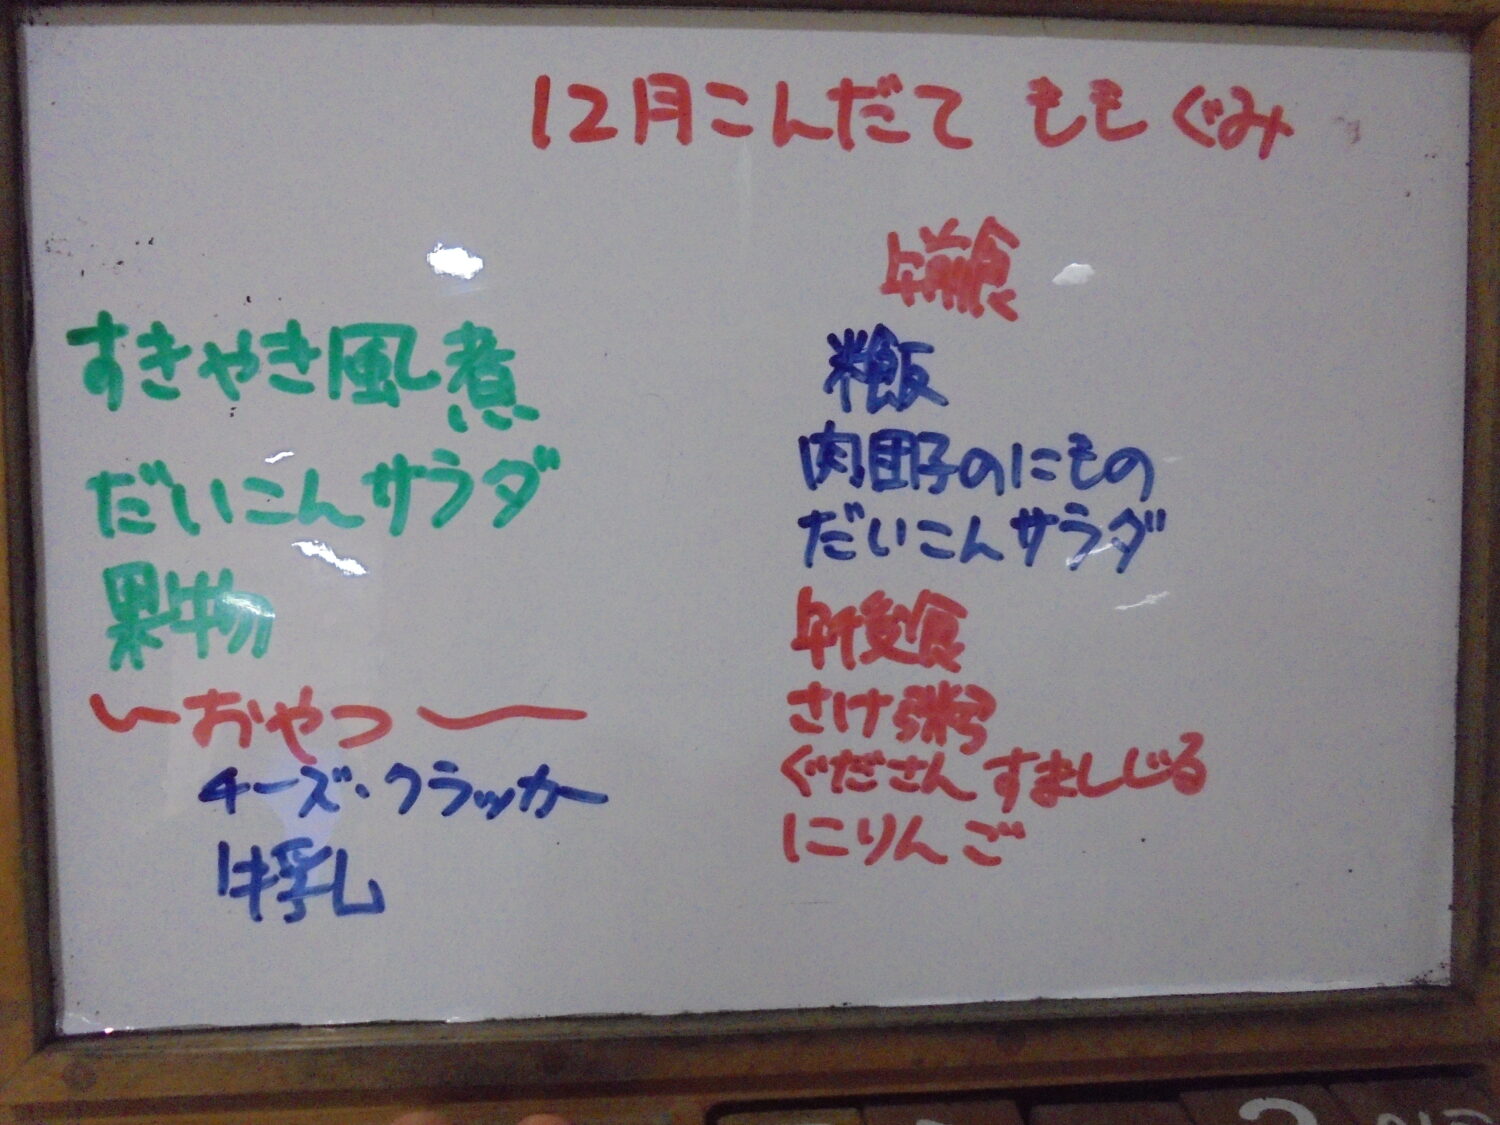 12月こんだて ももぐみ
すきやき風煮
だいこんサラダ
果物
〜おやつ〜
チーズ・クラッカー
牛乳
午前食
軟飯
肉団子のにもの
だいこんサラダ
午後食
さけ粥
ぐださんすましじる
にりんご